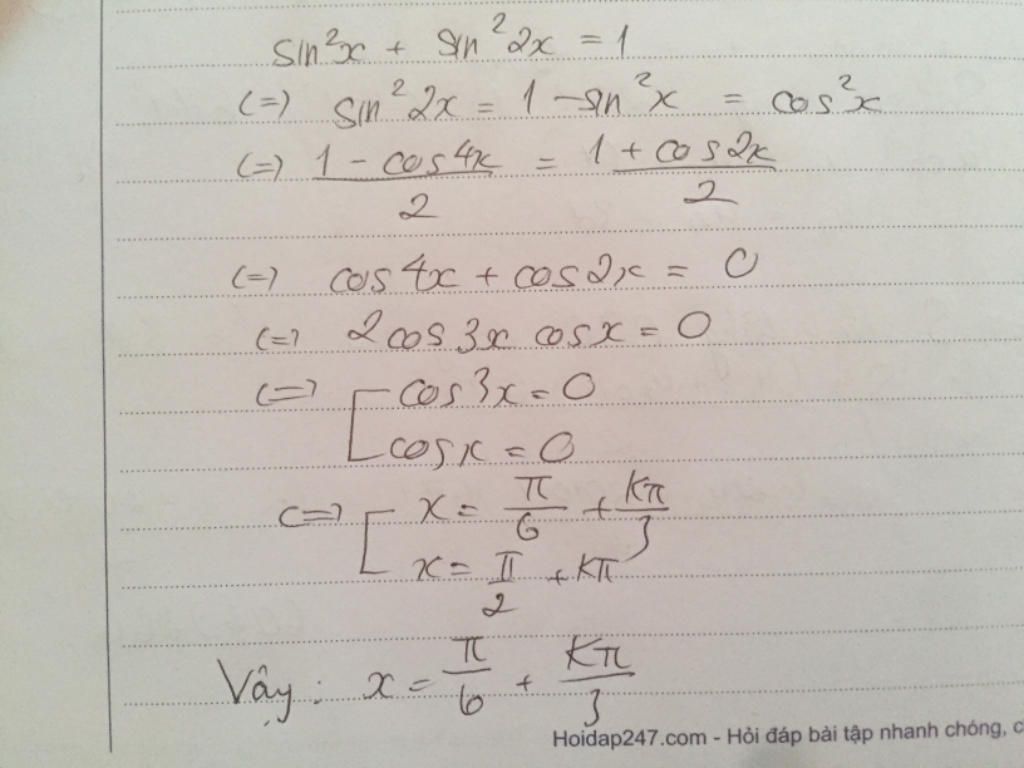 sin²x + sin²2x = 1
(=) sin²2x = 1 - sin²x = cos²x
(=) (1 - cos4x)/2 = (1 + cos2x)/2
(=) cos4x + cos2x = 0
(=) 2cos3x cosx = 0
(=) [ cos3x = 0
cosx = 0
(=) [ x = π/6 + kπ/3
x = π/2 + kπ
Vậy: x = π/6 + kπ/3
Hoidap247.com - Hỏi đáp bài tập nhanh chóng, c